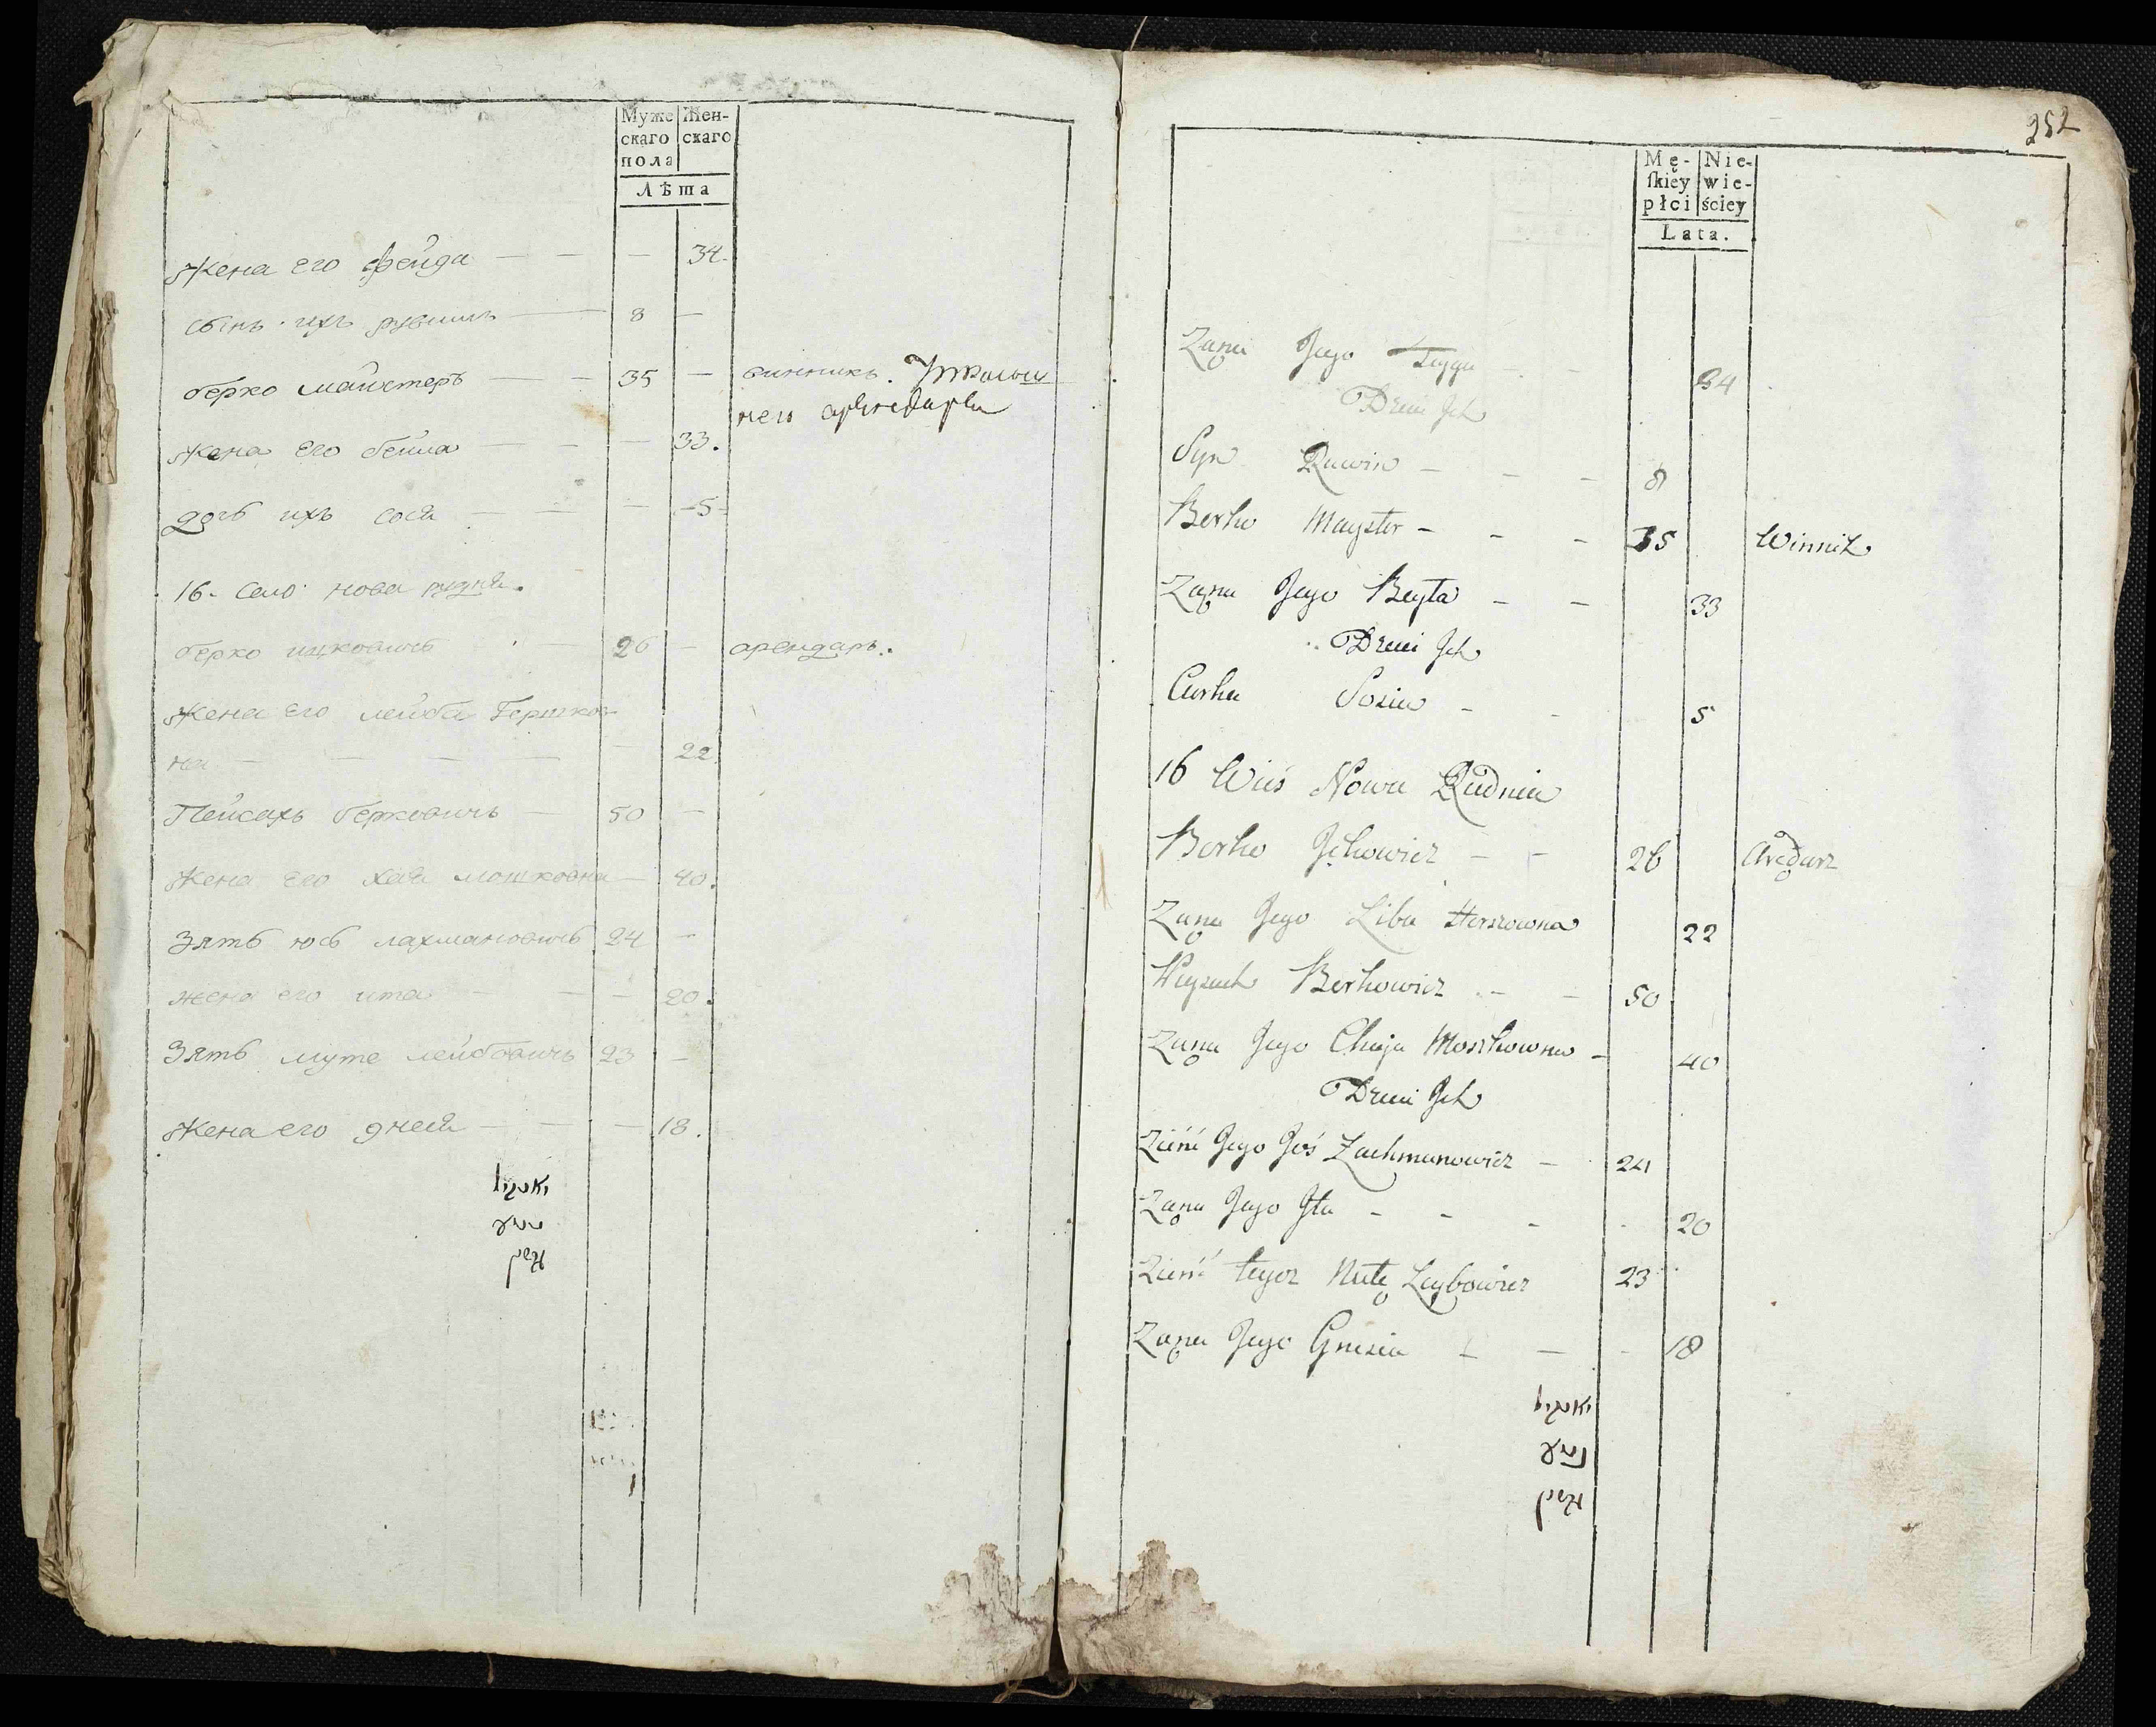 Муже
скаго
пола
Жен-
скаго
Лѣта
Жена его фейда — — — 34.
сынъ ихъ рувинъ — 8 —
берко майстеръ — — 35 — винникъ.
Жена его бейла — — — 33.
дочь ихъ сося — — — 5
16. село нова рудня.
берко ицковичъ — 26 — арендарь.
Жена его лейба Гершков-
на — — — — — 22
Пейсахъ берковичъ — 50 —
Жена его хая мошковна — 40.
Зять юсь лахмановичь 24 —
жена его ита — — — 20.
Зять муте лейбовичъ 23 —
Жена его гнеся — — — 18.
252
Mę-
skiey
płci
Nie-
wie-
ściey
Lata.
Ząna Jego Feyga - - 34
Dzieci Ich
Syn Ruwin - - - 8
Berko Mayster - - - 35 Winnik
Ząna Jego Beyła - - 33
Dzieci Ich
Curka Sosia - - 5
16 Wieś Nowa Rudnia
Berko Ickowicz - - 26 Arędarz
Ząna Jego Liba Herszowna 22
Peysach Berkowicz - - 50
Ząna Jego Chaja Moszkowna - 40
Dzieci Ich
Zieńć Jego Joś Lachmanowicz - 24
Ząna Jego Ita - - - - 20
Zieńć tegoz Mutę Leybowicz 23
Ząna Jego Gnesia - - - 18